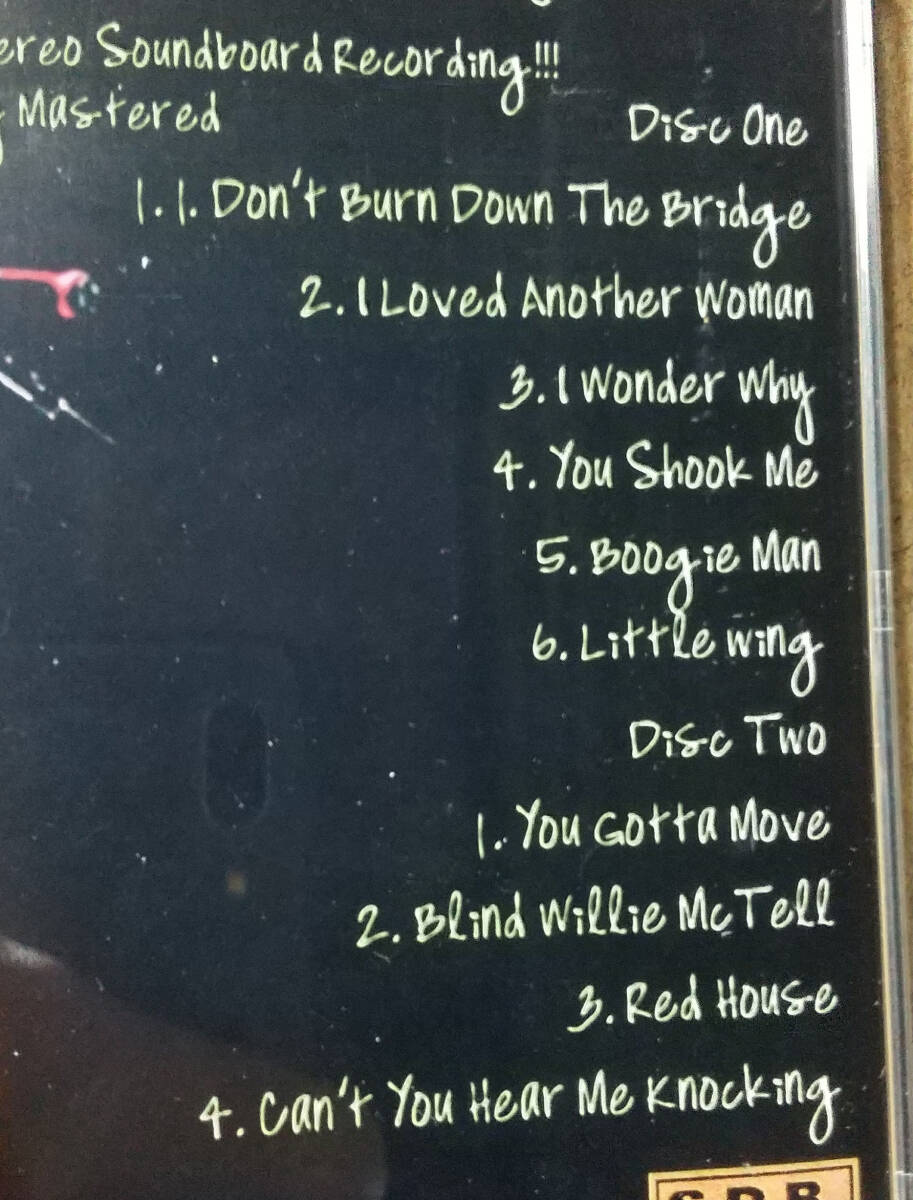 Soundboard Recording!!!
Mastered
Disc One
1.1. Don't Burn Down The Bridge
2. I Loved Another Woman
3. I Wonder Why
4. You Shook Me
5. Boogie Man
6. Little Wing
Disc Two
1. You Gotta Move
2. Blind Willie McTell
3. Red House
4. Can't You Hear Me Knocking